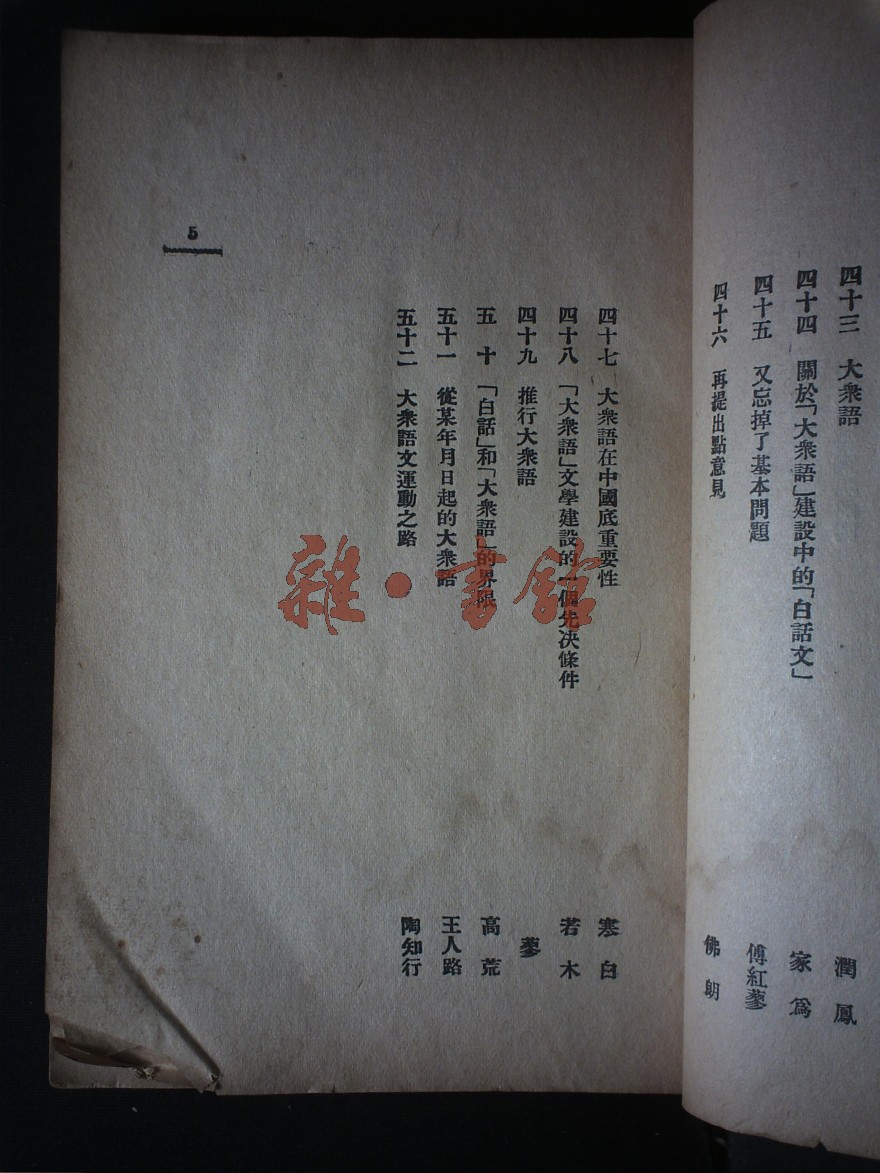 四十三 大衆語 潤鳳
四十四 關於「大衆語」建設中的「白話文」 家爲
四十五 又忘掉了基本問題 傅紅蓼
四十六 再提出點意見 佛朗
5
四十七 大衆語在中國底重要性 寒白
四十八 「大衆語」文學建設的一個先決條件 若木
四十九 推行大衆語 蓼
五十 「白話」和「大衆語」的界限 高荒
五十一 從某年月日起的大衆語 王人路
五十二 大衆語文運動之路 陶知行
雜·書館